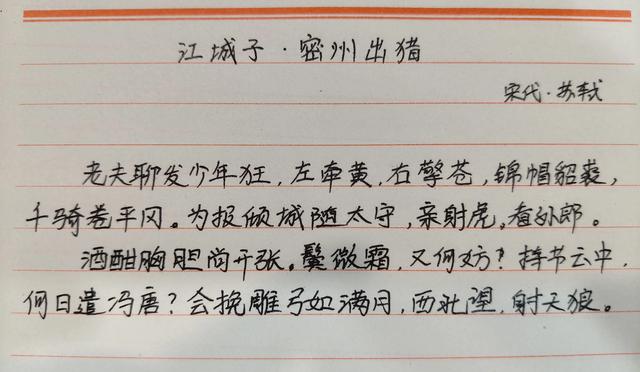 江城子·密州出猎
宋代·苏轼
老夫聊发少年狂,左牵黄,右擎苍,锦帽貂裘,
千骑卷平冈。为报倾城随太守,亲射虎,看孙郎。
酒酣胸胆尚开张。鬓微霜,又何妨?持节云中,
何日遣冯唐?会挽雕弓如满月,西北望,射天狼。